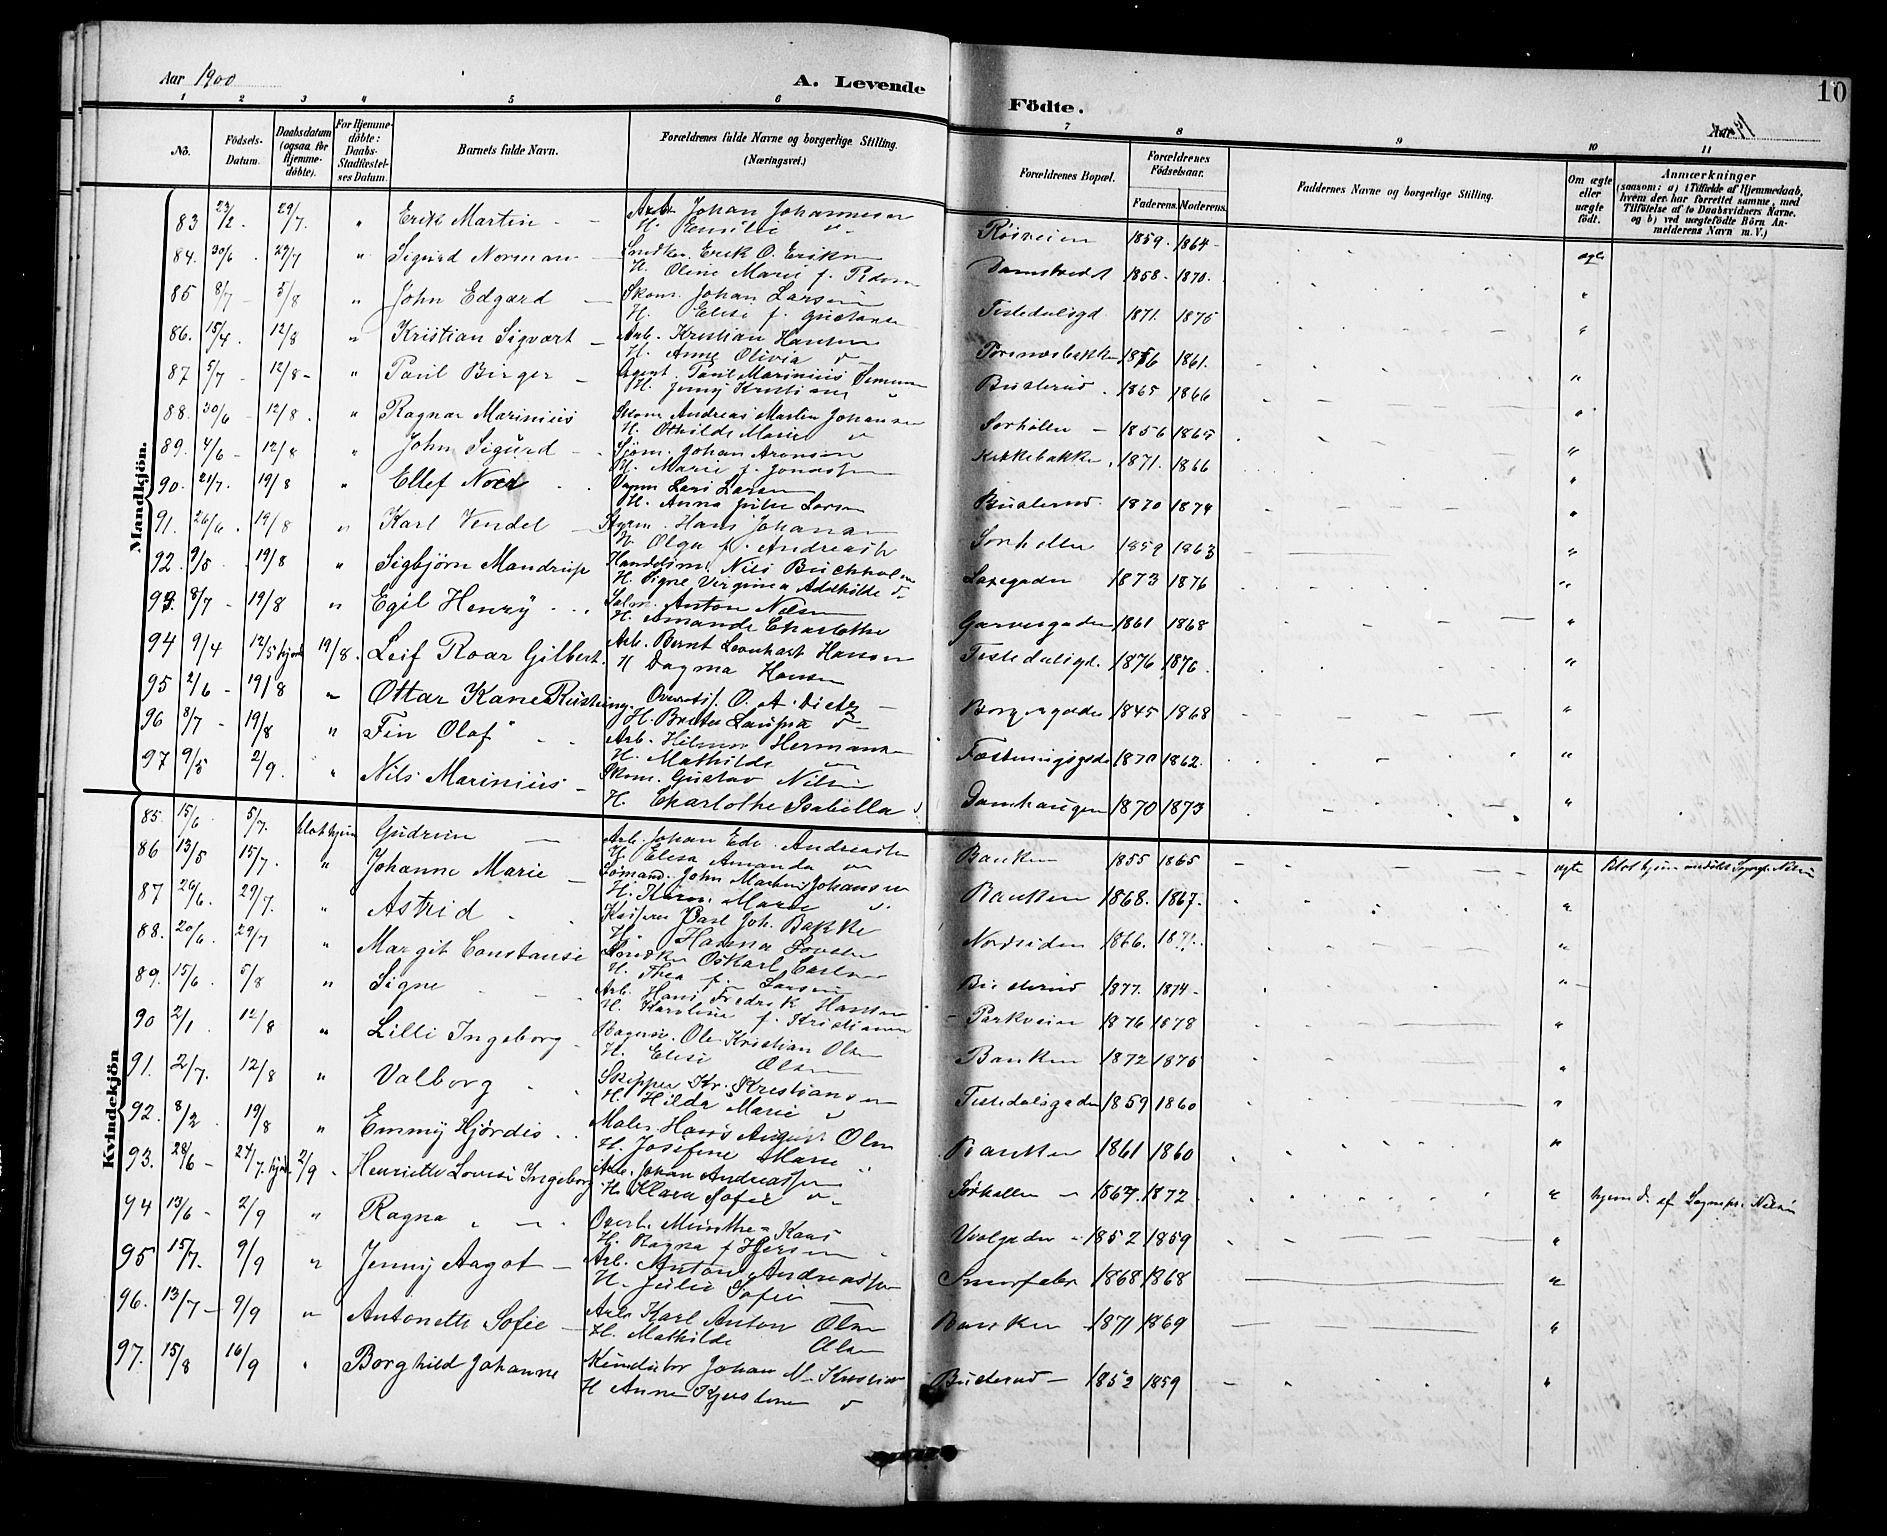 Aar 1900
A. Levende
Födte.
10
Aar
1 2 3 4 5 6 7 8 9 10 11
No.
Födsels-Datum.
Daabsdatum (ogsaa for Hjemme-döbte).
For Hjemme-döbte: Daabs-Stadfæstel-ses Datum.
Barnets fulde Navn.
Forældrenes fulde Navne og borgerlige Stilling. (Næringsvei.)
Forældrenes Bopæl.
Forældrenes Födselsaar.
Faderens. Moderens.
Faddernes Navne og borgerlige Stilling.
Om ægte eller uægte födt.
Anmærkninger
(saasom: a) i Tilfælde af Hjemmedaab, hvem der har forrettet samme, med Tilföielse af to Daabsvidners Navne, og b) ved uægtefödte Börn An-melderens Navn m. V.)
Mandkjön.
83 23/2. 29/7. " Erik Martin Arb. Johan Johannesen Röisveien 1859. 1864 ægte
H. Emilie
84. 30/6 29/7 " Sigurd Norman Snedker. Erik O. Eriksen Damstrædet 1858. 1870. "
H. Oline Marie f.
85 8/7 5/8 " John Edgard Skom. Johan Larsen Tistedalsgd 1871. 1875 "
H. Elise f. Gustavsen
86. 15/4. 12/8 " Kristian Sigvart Arb. Kristian Hansen 1856 1861. "
H. Anne Olivia
87 5/7 12/8 " Paul Birger Agent. Paul Marinius Busterud 1865 1866 "
H. Jenny Kristiane
88. 30/6 12/8 " Ragnar Marinius Skom Andreas Martin Johansen Sørhalen 1856 1865 "
H. Othilde Marie
89. 4/6 12/8 " John Sigurd Sjöm. Johan Aronsen Kirkebakken 1871. 1866 "
H. Marie f. Jonassen
90. 21/7. 19/8 " Ellef Lars Larsen Busterud 1870 1874 "
H. Anna Julie Larsen
91. 26/6. 19/8 " Karl Vendel Styrm. Hans Johansen Sörhallen 1859 1863 "
H. Olga f. Andreassen
92. 9/5 19/8 " Sigbjörn Mandrup Handelsm. Nils Buchholm 1873 1876 "
H. Signe Virginia
93. 8/7 19/8 " Egil Henry Anton Nilsen Garvergaden 1861 1868 "
H. Amande Charlothe
94 9/4 12/5 hjem 19/8. Leif Roar Gilbert. Arb. Bernt Leonhart Hansen Tistedalsgd. 1876 1876 "
H Dagma Hansen
95 2/6 19/8 " Ottar Kane O. A. Dietz Borgergaden 1845 1868 "
96 8/7 19/8 " Fin Olaf Arb. Hilmar Hermansen Fæstningsgade 1870 1862. "
H. Mathilde
97 9/5 2/9. " Nils Marinius Skom. Gustav Nilsen Damhaugen 1870 1873 "
H. Charlothe Isabella
Kvindekjön
85. 15/6 5/7. Gudrun Arb. Johan Edv. Andreassen Banken 1855 1865 ægte
H. Elisa Amanda
86 13/5 15/7. " Johanne Marie Sömand. John Martin Johansen Banken 1868. 1867. "
H. Karen Marie
87 26/6. 29/7. " Astrid Carl Joh. Bakke Nordsiden 1866. 1871. "
H. Hanna Lovise
88. 20/6. 29/7 " Margit Constanse Snedker Oskarl Carlsen Busterud 1877. 1874 "
H. Thea f. Larsen
89. 15/6 5/8 " Signe Arb. Hans Fredrik Hansen Parkveien 1876 1878 "
H. Karoline f. Kristiansen
90 2/1. 12/8 " Lilli Ingeborg Bagersv. Ole Kristian Olsen Banken 1872 1875 "
H. Elise Olsen
91. 2/7. 12/8 " Valborg Skipper Kr. Kristiansen Tistedalsgaden 1859 1860 "
H. Hilda Marie
92. 8/2 19/8 " Emmy Hjördis Maler Hans August Olsen Banken 1861 1860 "
H. Josefine Marie
93. 28/6 24/7. hjem 2/9 Henriette Lovise Ingeborg Arb. Johan Andreassen Sörhallen 1867. 1872. " hjemd. af Sognepr. Nilsen
H. Klara Sofie
94 13/6 2/9 " Ragna Overl. Munthe-Kaas 1852 1859 "
H. Ragna f.
95 15/7. 9/9 " Jenny Aagot Arb. Anton Andreassen 1868 1868 "
H. Julie Sofie
96. 13/7 9/9 " Antonette Sofie Arb. Karl Anton Olsen Banken 1871 1869 "
H. Mathilde Olsen
97. 15/8 16/9 " Borghild Johanne Johan M. Kristiansen Busterud 1852 1859 "
H Anne Kjerstine